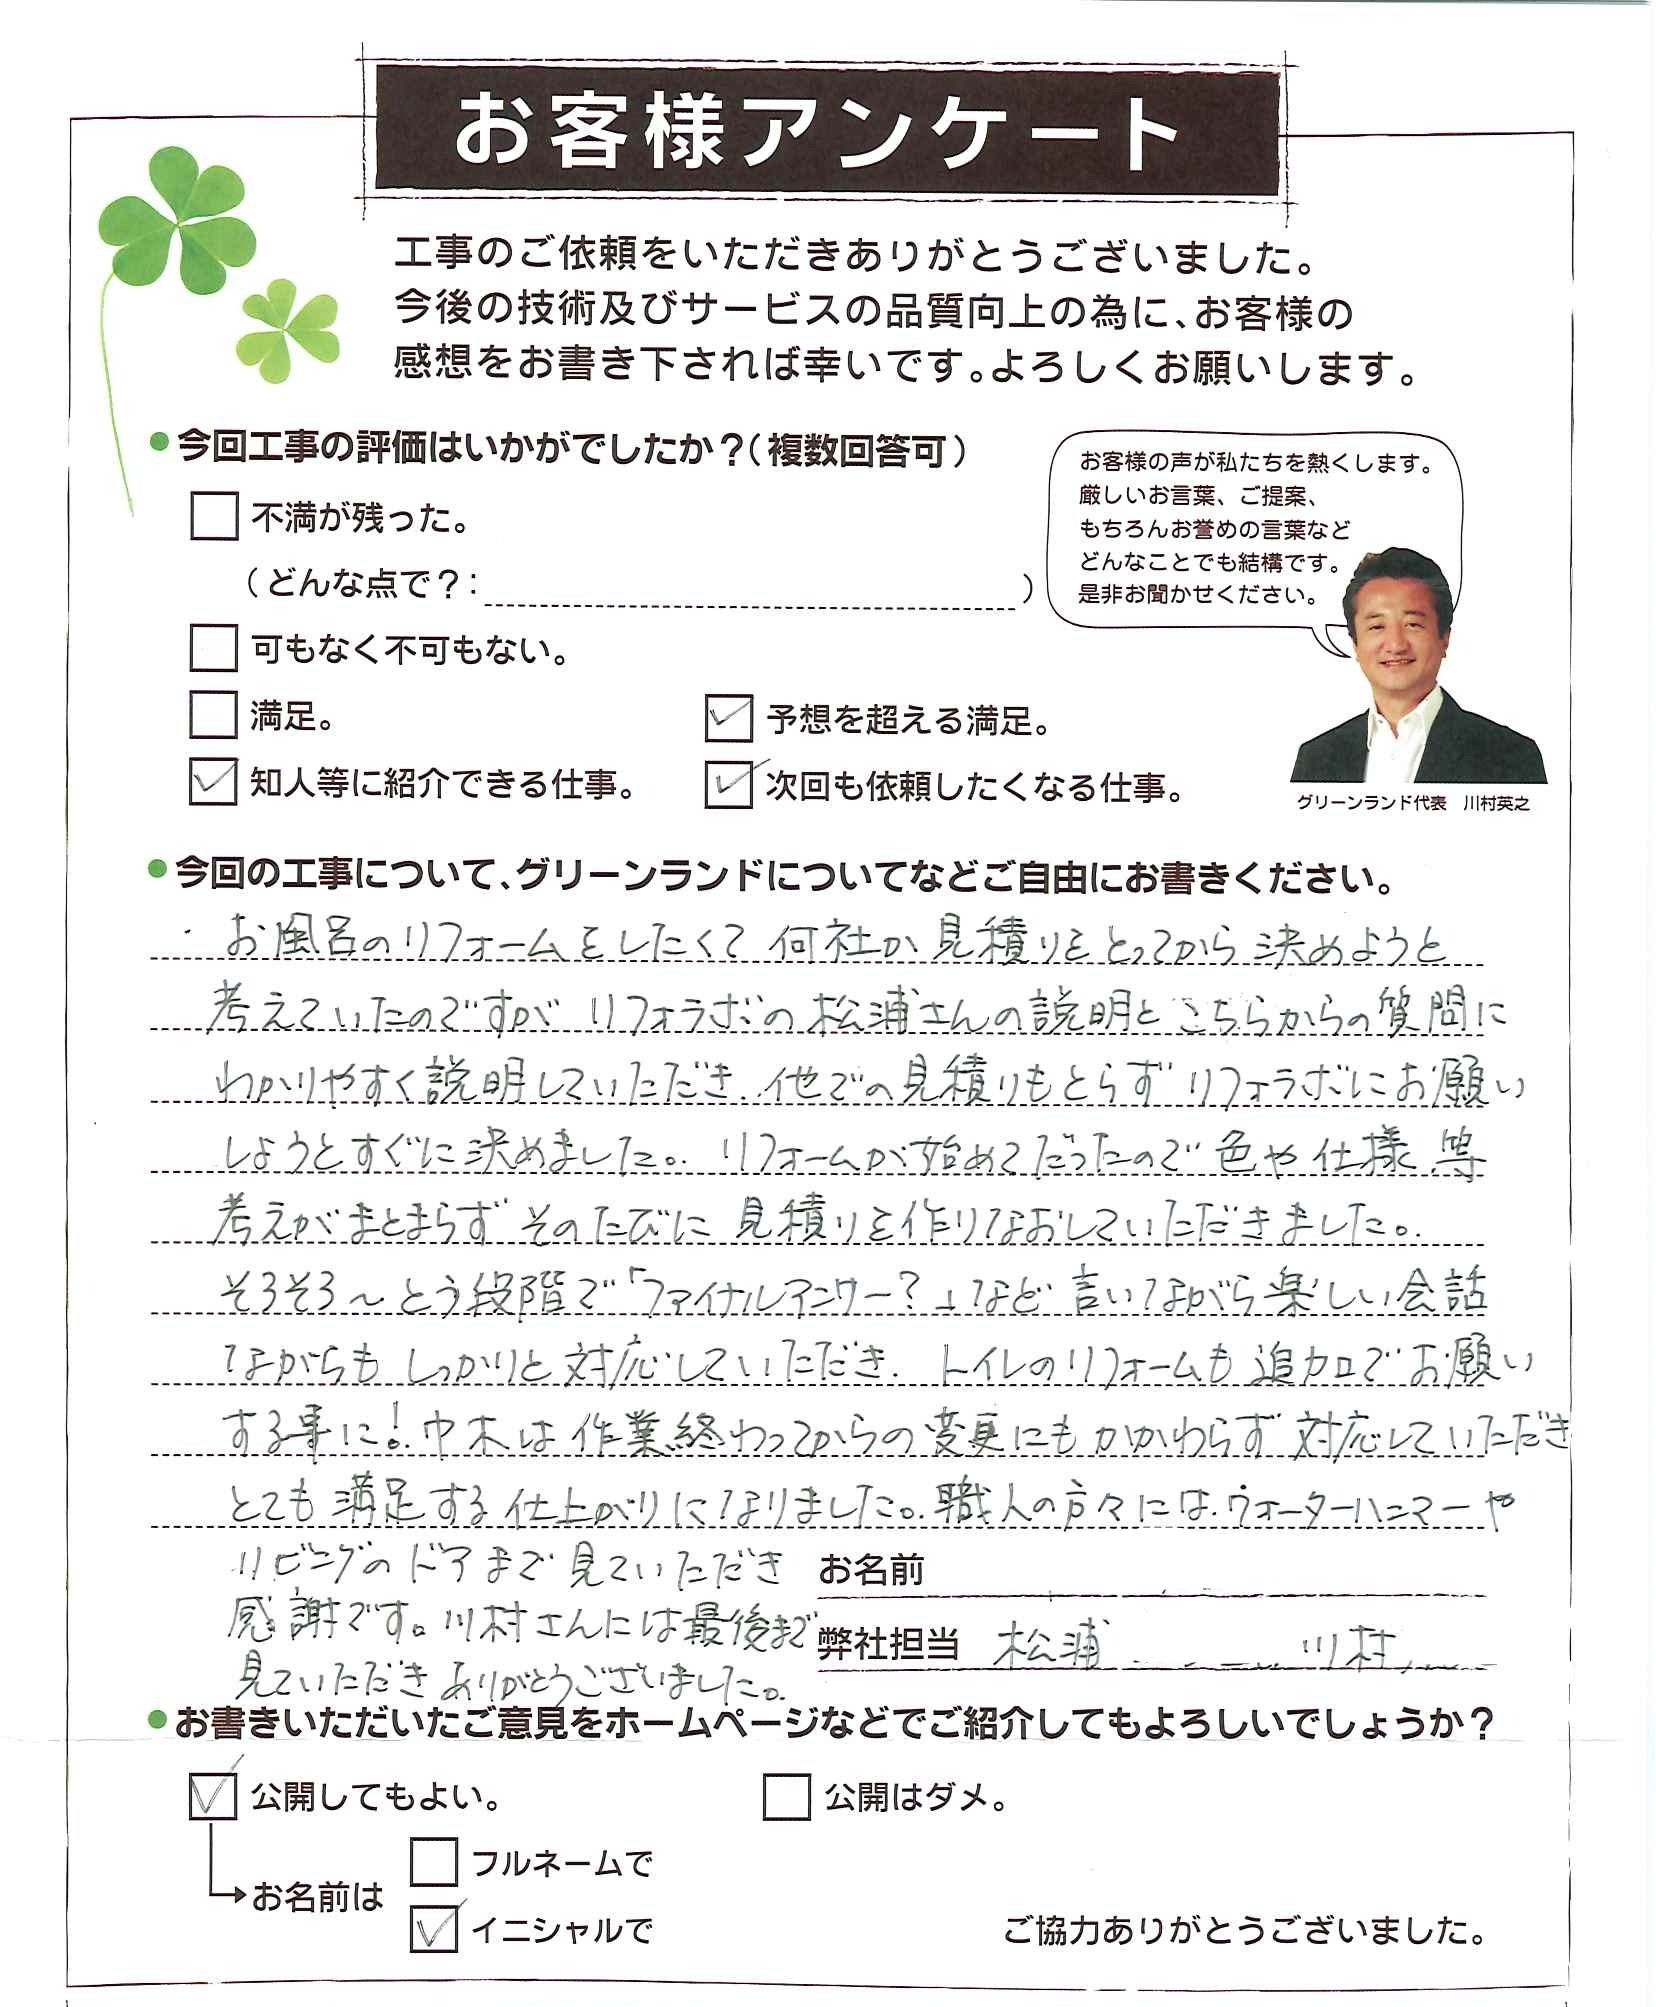 お客様アンケート
工事のご依頼をいただきありがとうございました。
今後の技術及びサービスの品質向上の為に、お客様の
感想をお書き下されば幸いです。よろしくお願いします。
●今回工事の評価はいかがでしたか？（複数回答可）
お客様の声が私たちを熱くします。
厳しいお言葉、ご提案、
もちろんお誉めの言葉など
どんなことでも結構です。
是非お聞かせください。
グリーンランド代表　川村英之
□ 不満が残った。
（どんな点で？：　　　）
□ 可もなく不可もない。
□ 満足。　☑ 予想を超える満足。
☑ 知人等に紹介できる仕事。　☑ 次回も依頼したくなる仕事。
●今回の工事について、グリーンランドについてなどご自由にお書きください。
・お風呂のリフォームをしたくて 何社か 見積りをとってから 決めようと
考えていたのですが リフォラボの松浦さんの説明と こちらからの質問に
わかりやすく説明していただき、他での見積りもとらず リフォラボにお願い
しようとすぐに決めました。リフォームが始めてだったので 色や仕様 等
考えがまとまらず そのたびに 見積りを作りなおしていただきました。
そろそろ〜とう段階で「ファイナルアンサー？」など 言いながら楽しい会話
ながらも しっかりと対応していただき、トイレのリフォームも 追加でお願い
する事に！巾木は作業終わってからの変更にもかかわらず 対応していただき
とても満足する仕上がりになりました。職人の方々には、ウォーターハンマーや
リビングのドアまで 見ていただき
感謝です。川村さんには最後まで
見ていただき ありがとうございました。
お名前
弊社担当　松浦　川村
●お書きいただいたご意見をホームページなどでご紹介してもよろしいでしょうか？
☑ 公開してもよい。　□ 公開はダメ。
→お名前は
□ フルネームで
☑ イニシャルで
ご協力ありがとうございました。